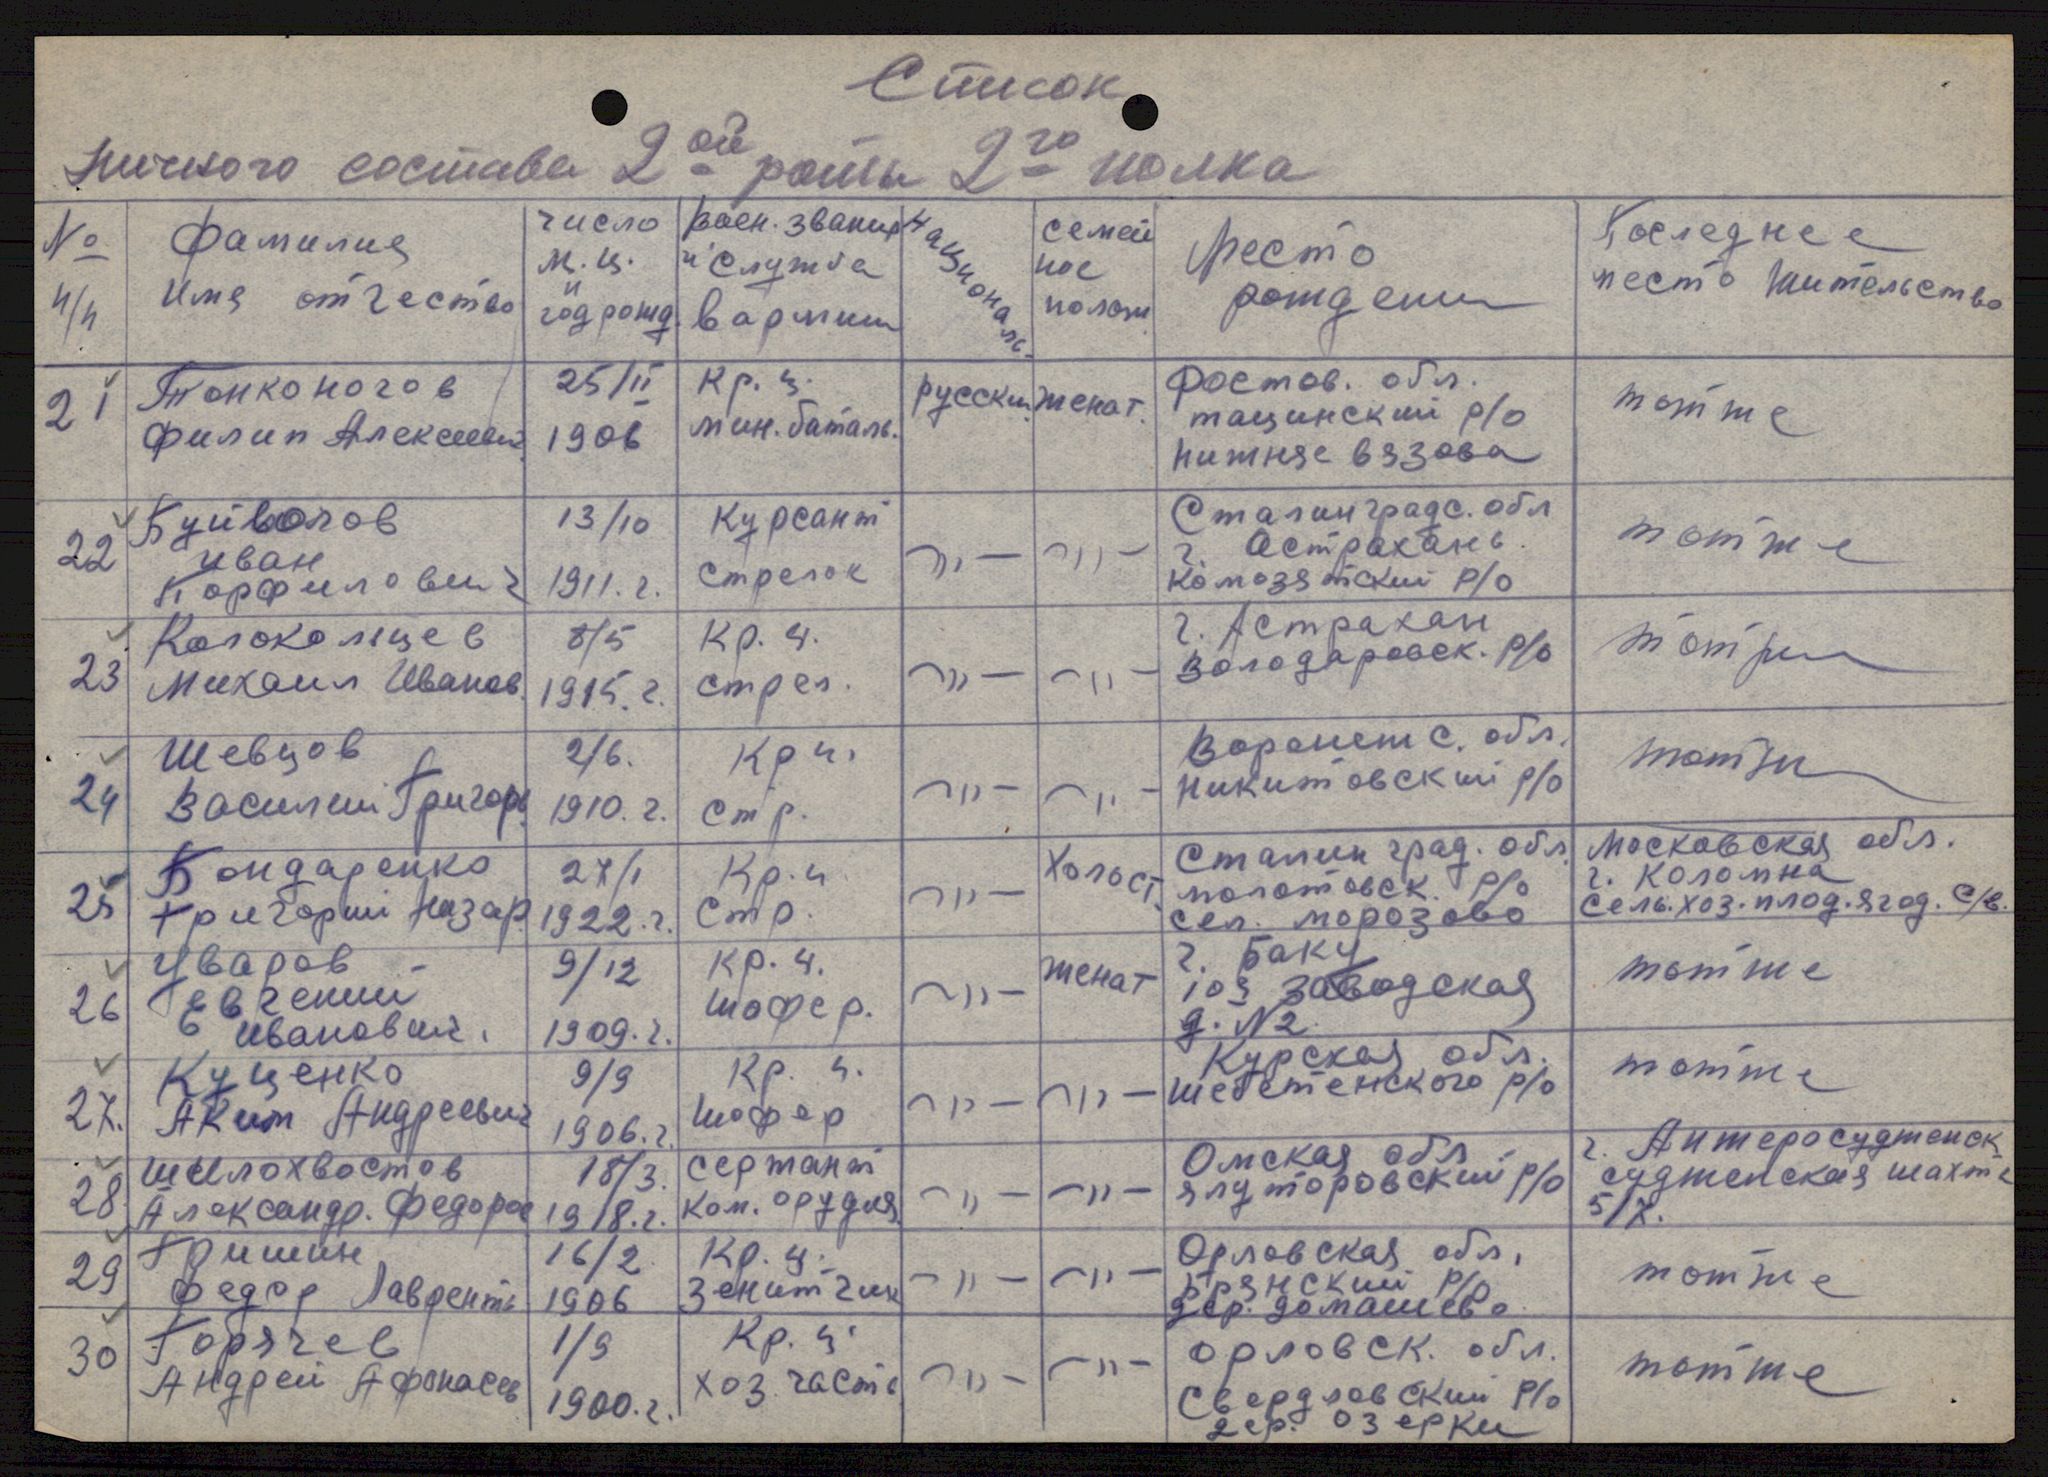 Список
личного состава 2ой роты 2го полка
№ п/п
Фамилия Имя отчество
число м-ц. и год рожд.
Воен. звания и служба в армии
Национальн.
семейное полож.
Место рождения
Последнее место жительство
21 Тонконогов 25/II Кр. ц. русский женат. Ростов. обл. тотже
Филип Алексеевич 1906 мин. баталь. тацинский р/о
Нижняе вязова
22 Буйволов 13/10 Курсант –„– –„– Сталинградс. обл тотже
Иван г. Астрахань
Порфилович 1911. г. стрелок Комозятский р/о
23 Колокольцев 8/5 Кр. ц. –„– –„– г. Астрахан тотже
Михаил Иванов. 1915. г. стрел. Володаровск. р/о
24 Шевцов 2/6. Кр ц. –„– –„– Воронежс. обл. тотже
Василий Григорь. 1910. г. стр. Никитовский р/о
25 Бондаренко 27/I Кр. ц. –„– Холост. Сталинград. обл. Московская обл.
Григорий Назар. 1922. г. стр. молотовск. р/о г. Коломна
сел. морозово Сель.хоз.плод.ягод. с/в.
26 Уваров 9/12 Кр. ц. –„– женат г. Баку тотже
Евгений шофер. 10я Заводская
Иванович. 1909. г. д. № 2
27. Куценко 9/9 Кр. ц. –„– –„– Курская обл. тотже
Аким Андреевич 1906. г. шофер Шебетенского р/о
28 Шилохвостов 18/3. сержант –„– –„– Омская обл г. Анжеросудженск
Александр. Федоров 1918. г. ком. орудия. ялуторовский р/о судженская шахте
5/7.
29 Гришин 16/2 Кр. ц. –„– –„– Орловская обл. тотже
Федор Лавренть 1906 Зенитчик Брянский р/о
дер. домашево.
30 Горячев 1/9 Кр. ц. –„– –„– Орловск. обл. тотже
Андрей Афонасев 1900. г. хоз. часть Свердловский р/о
дер. озерки